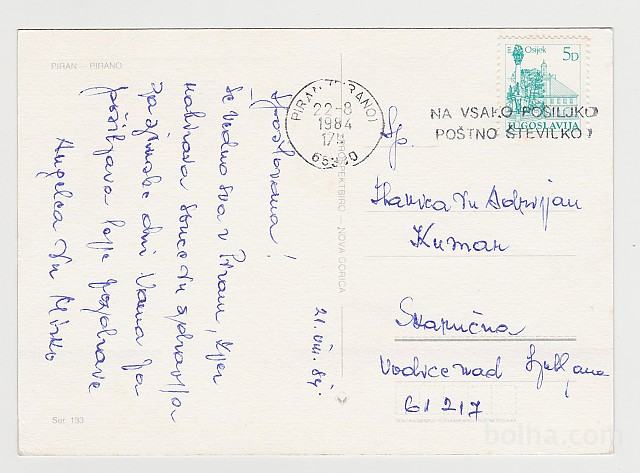 PIRAN — PIRANO
Spoštovana!
Še vedno sva v Piranu, kjer
nabirava sonce in zdravje
za zimske dni. Vama pa
pošiljava lepe pozdrave
Angelca in Mirko
21. VIII. 84.
Ser. 133
PROSPEKTBIRO — NOVA GORICA
PIRAN (PIRANO)
22-8
1984
17
66330
NA VSAKO POŠILJKO
POŠTNO ŠTEVILKO!
Osijek
5D
JUGOSLAVIJA
Sp.
Slavica in Adrijan
Kumar
Skaručna
Vodice nad Ljubljano
61217
bolha.com